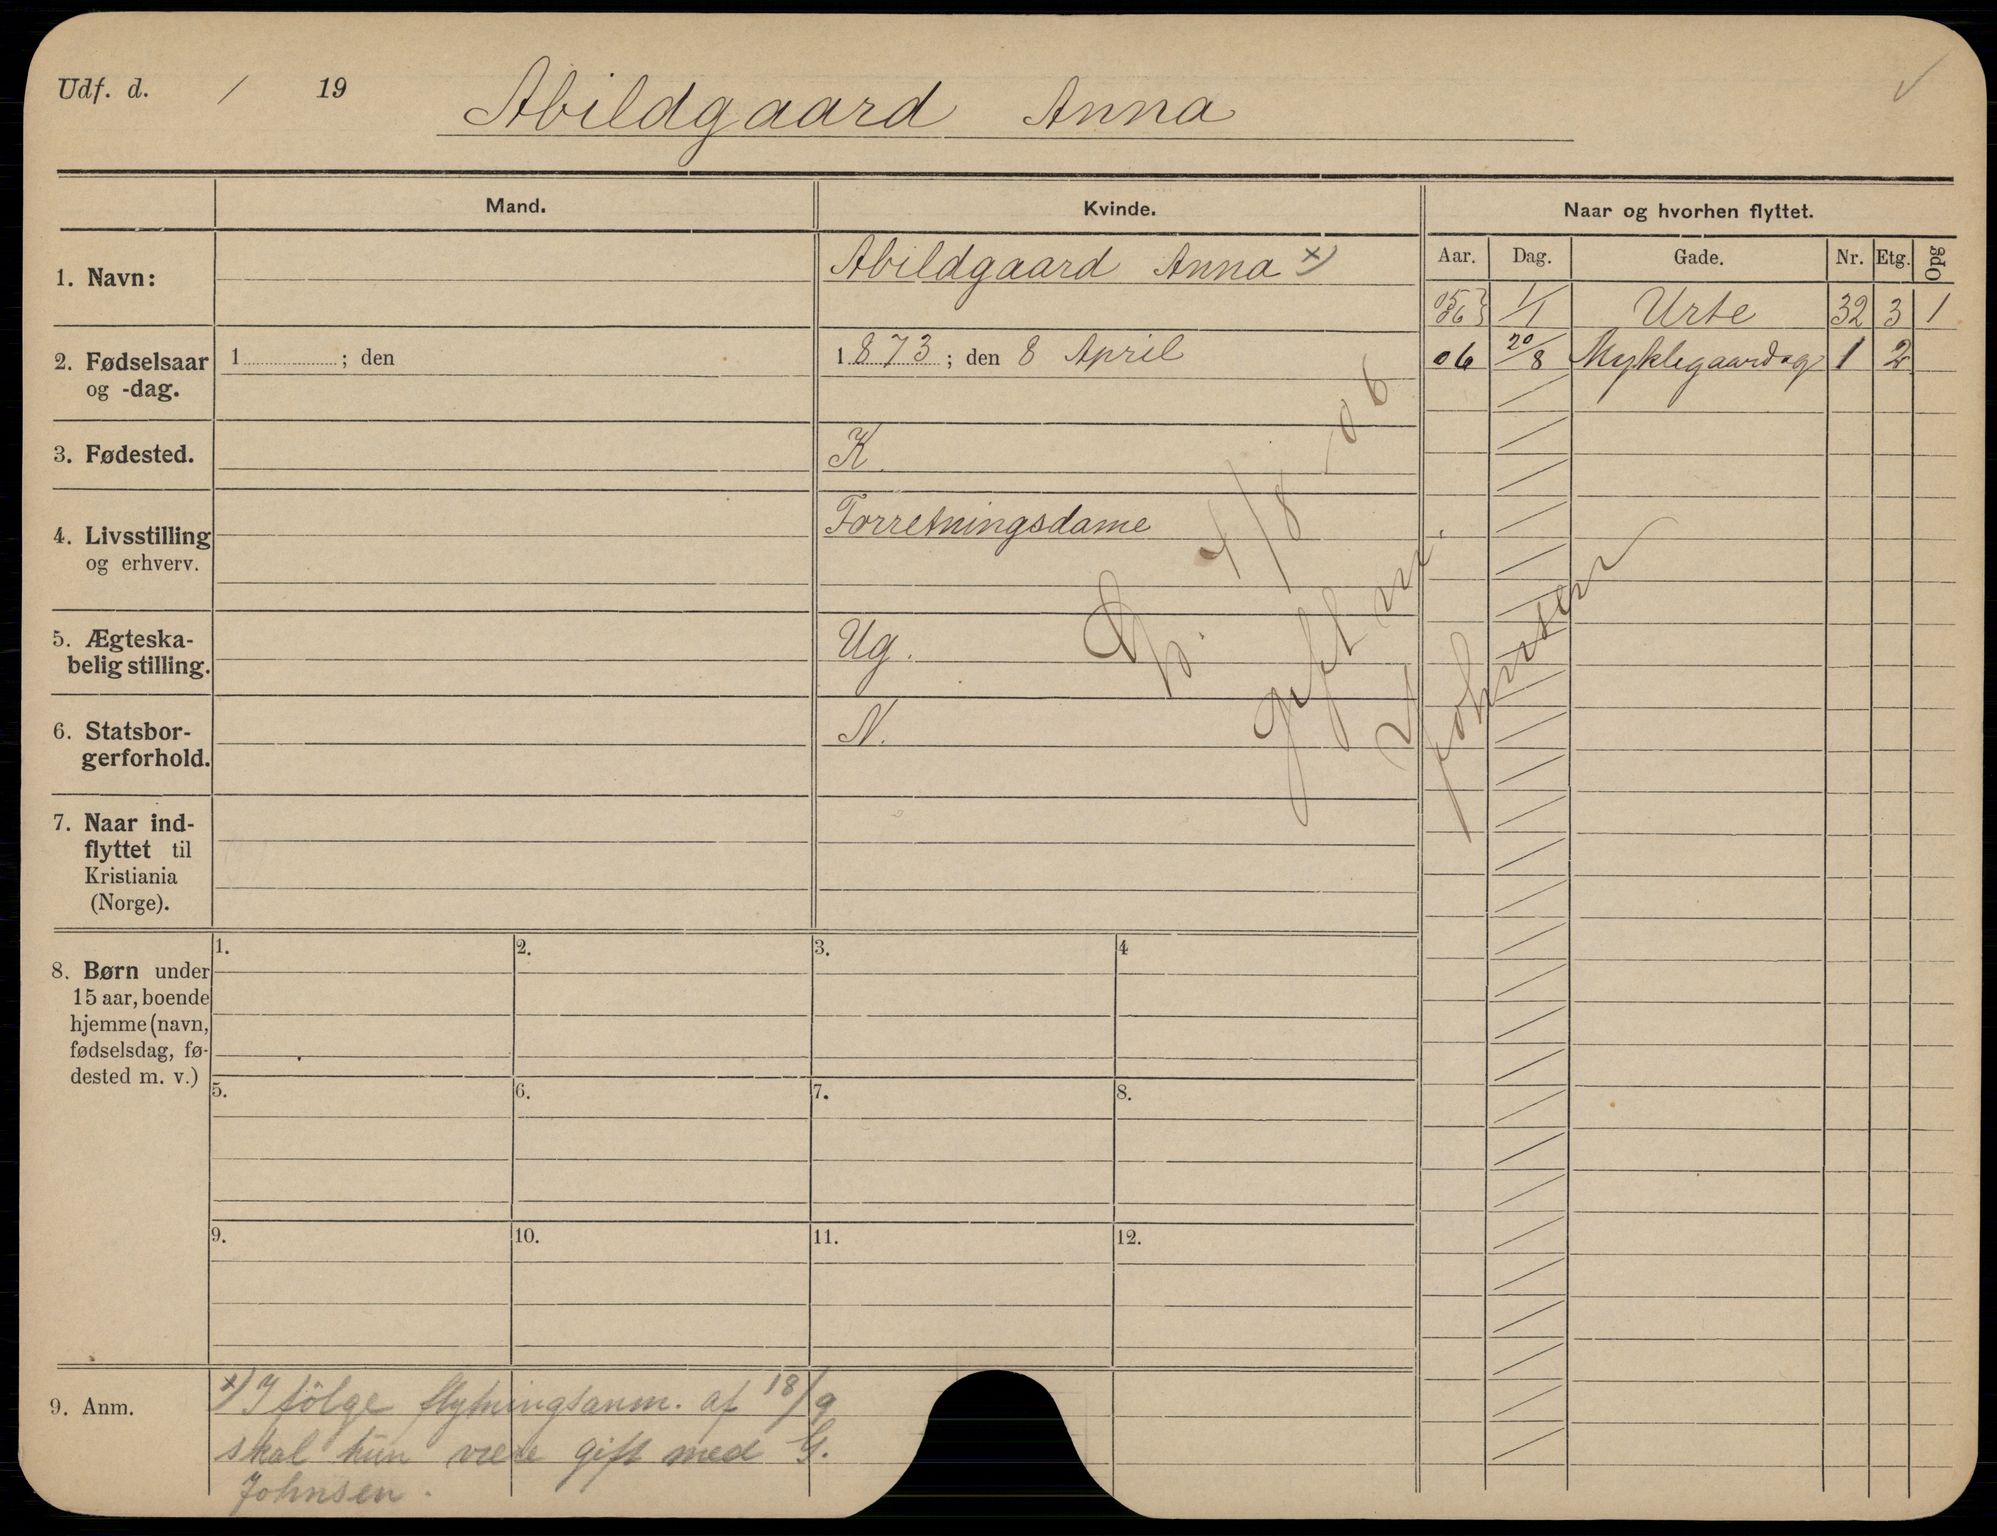 Udf. d. / 19
Abildgaard Anna
Mand.
Kvinde.
Naar og hvorhen flyttet.
Aar. Dag. Gade. Nr. Etg. Opg
1. Navn:
Abildgaard Anna x)
05 06 } 1/1 Urte 32 3 1
2. Fødselsaar og -dag.
1 ; den
1873; den 8 April
06 20/8 Myklegaardsg 1 2
3. Fødested.
K.
4. Livsstilling
og erhverv.
Forretningsdame
5. Ægteska-
belig stilling.
Ug.
6. Statsbor-
gerforhold.
N.
7. Naar ind-
flyttet til
Kristiania
(Norge).
/8 06
gift m.
Johnsen
8. Børn under
15 aar, boende
hjemme (navn,
fødselsdag, fø-
dested m. v.)
1. 2. 3. 4
5. 6. 7. 8.
9. 10. 11. 12.
9. Anm.
x) I følge flytningsanm. af 18/9
skal hun være gift med G.
Johnsen.